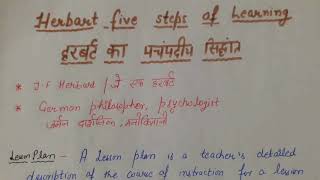 Herbart five steps of Learning
हरबर्ट का पंचपदीय सिद्धांत
* J.F Herbart / जे एफ हरबर्ट
* German philosopher, psychologist
जर्मन दार्शनिक, मनोविज्ञानी
Lesson Plan - A Lesson plan is a teacher's detailed
description of the course of instruction for a lesson